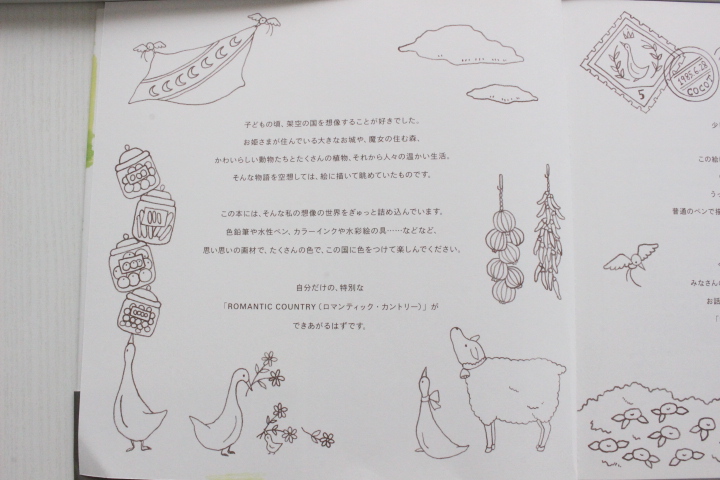 子どもの頃、架空の国を想像することが好きでした。
お姫さまが住んでいる大きなお城や、魔女の住む森、
かわいらしい動物たちとたくさんの植物、それから人々の温かい生活。
そんな物語を空想しては、絵に描いて眺めていたものです。
この本には、そんな私の想像の世界をぎゅっと詰め込んでいます。
色鉛筆や水性ペン、カラーインクや水彩絵の具……などなど、
思い思いの画材で、たくさんの色で、この国に色をつけて楽しんでください。
自分だけの、特別な
「ROMANTIC COUNTRY（ロマンティック・カントリー）」が
できあがるはずです。
5
1985.6.28
COCOT
この絵
普通のペンで
みなさん
お話